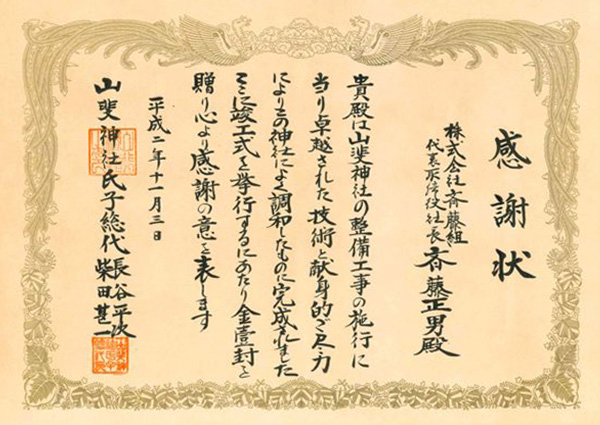 感謝状
株式会社斉藤組
代表取締役社長 斉藤正男殿
貴殿は山斐神社の整備工事の施行に
当り卓越された技術と献身的ご尽力
によりこの神社によく調和したものに完成されました
ここに竣工式を挙行するにあたり金壹封を
贈り心より感謝の意を表します
平成二年十一月三日
山斐神社氏子総代
長谷平次
柴田甚一